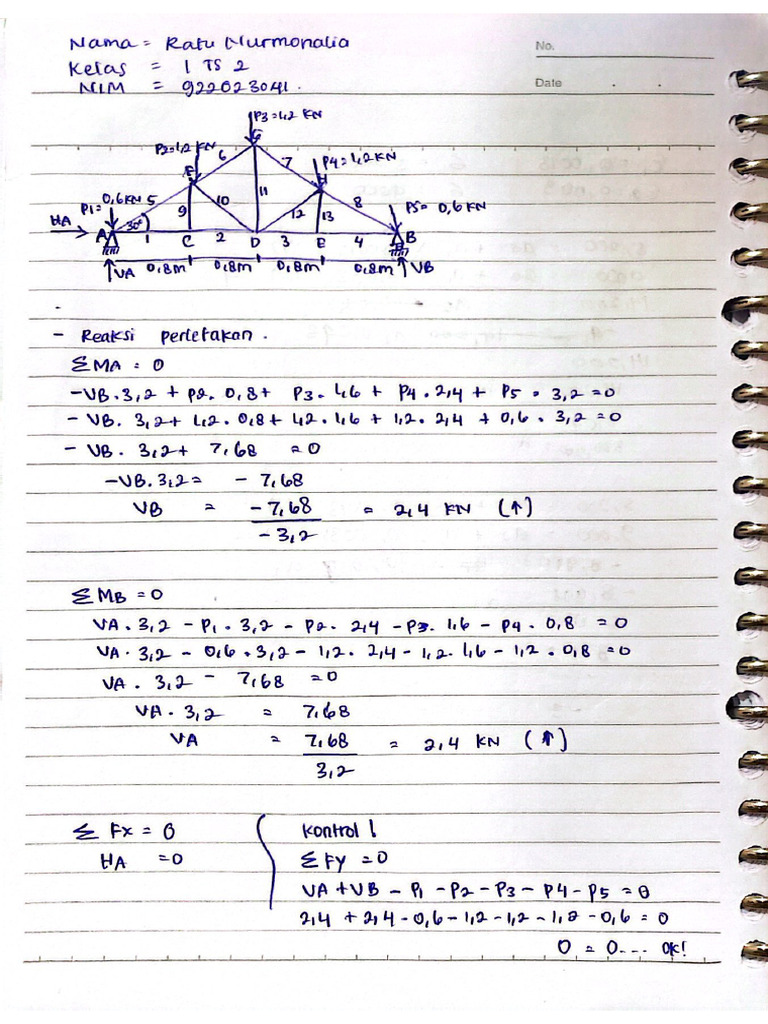 Nama = Ratu Nurmonalia
No.
Kelas = 1 TS 2
NIM = 922023041.
Date . .
P3 = 1,2 KN
P2 = 1,2 KN
G
6
7
P4 = 1,2 KN
F
H
P1 = 0,6 KN
5
10
11
8
P5 = 0,6 KN
HA
30°
9
12
13
A
1
C
2
D
3
E
4
B
VA
0,8m
0,8m
0,8m
0,8m
VB
- Reaksi perletakan.
ΣMA = 0
-VB.3,2 + P2. 0,8+ P3. 1,6 + P4 . 2,4 + P5 . 3,2 =0
- VB. 3,2+ 1,2. 0,8+ 1,2. 1,6 + 1,2. 2,4 + 0,6 . 3,2 =0
- VB. 3,2+ 7,68 =0
-VB.3,2 = - 7,68
VB = -7,68 = 2,4 KN (↑)
-3,2
ΣMB =0
VA.3,2 - P1. 3,2 - P2. 2,4 - P3. 1,6 - P4. 0,8 =0
VA. 3,2 - 0,6.3,2 - 1,2. 2,4 - 1,2. 1,6 - 1,2. 0,8 =0
VA. 3,2 - 7,68 =0
VA. 3,2 = 7,68
VA = 7,68 = 2,4 KN (↑)
3,2
Σ Fx = 0
Kontrol !
HA =0
ΣFY =0
VA+VB - P1 - P2 - P3 - P4 - P5 =0
2,4 + 2,4 - 0,6 - 1,2 - 1,2 - 1,2 - 0,6 = 0
0 = 0... OK!